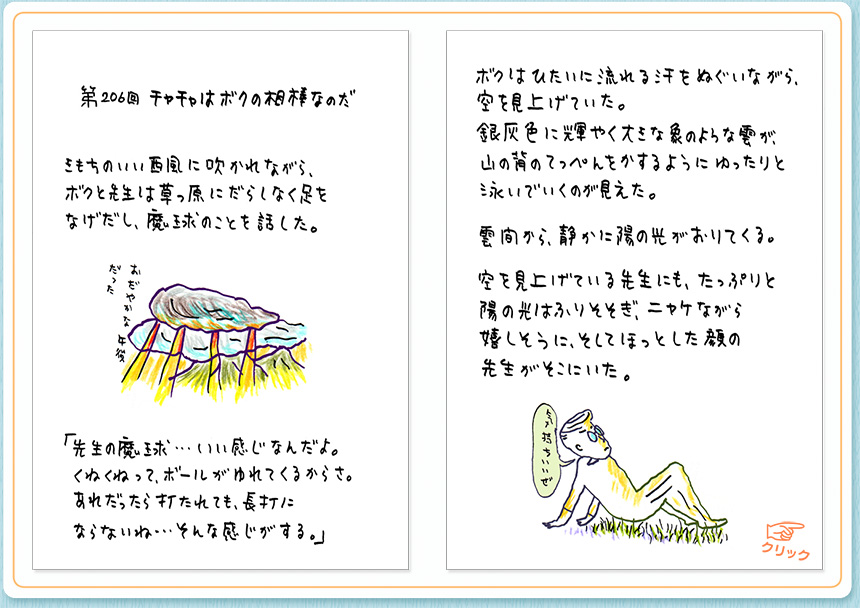 第206回 チャチャはボクの相棒なのだ
きもちのいい西風に吹かれながら、
ボクと先生は草っ原にだらしなく足を
なげだし、魔球のことを話した。
おだやかな午後
だった
「先生の魔球…いい感じなんだよ。
くねくねって、ボールがゆれてくるからさ。
あれだったら打たれても、長打に
ならないね…そんな感じがする。」
ボクはひたいに流れる汗をぬぐいながら、
空を見上げていた。
銀灰色に輝やく大きな象のような雲が、
山の背のてっぺんをかするようにゆったりと
泳いでいくのが見えた。
雲間から、静かに陽の光がおりてくる。
空を見上げている先生にも、たっぷりと
陽の光はふりそそぎ、ニヤケながら
嬉しそうに、そしてほっとした顔の
先生がそこにいた。
気持ちいいぜ
クリック